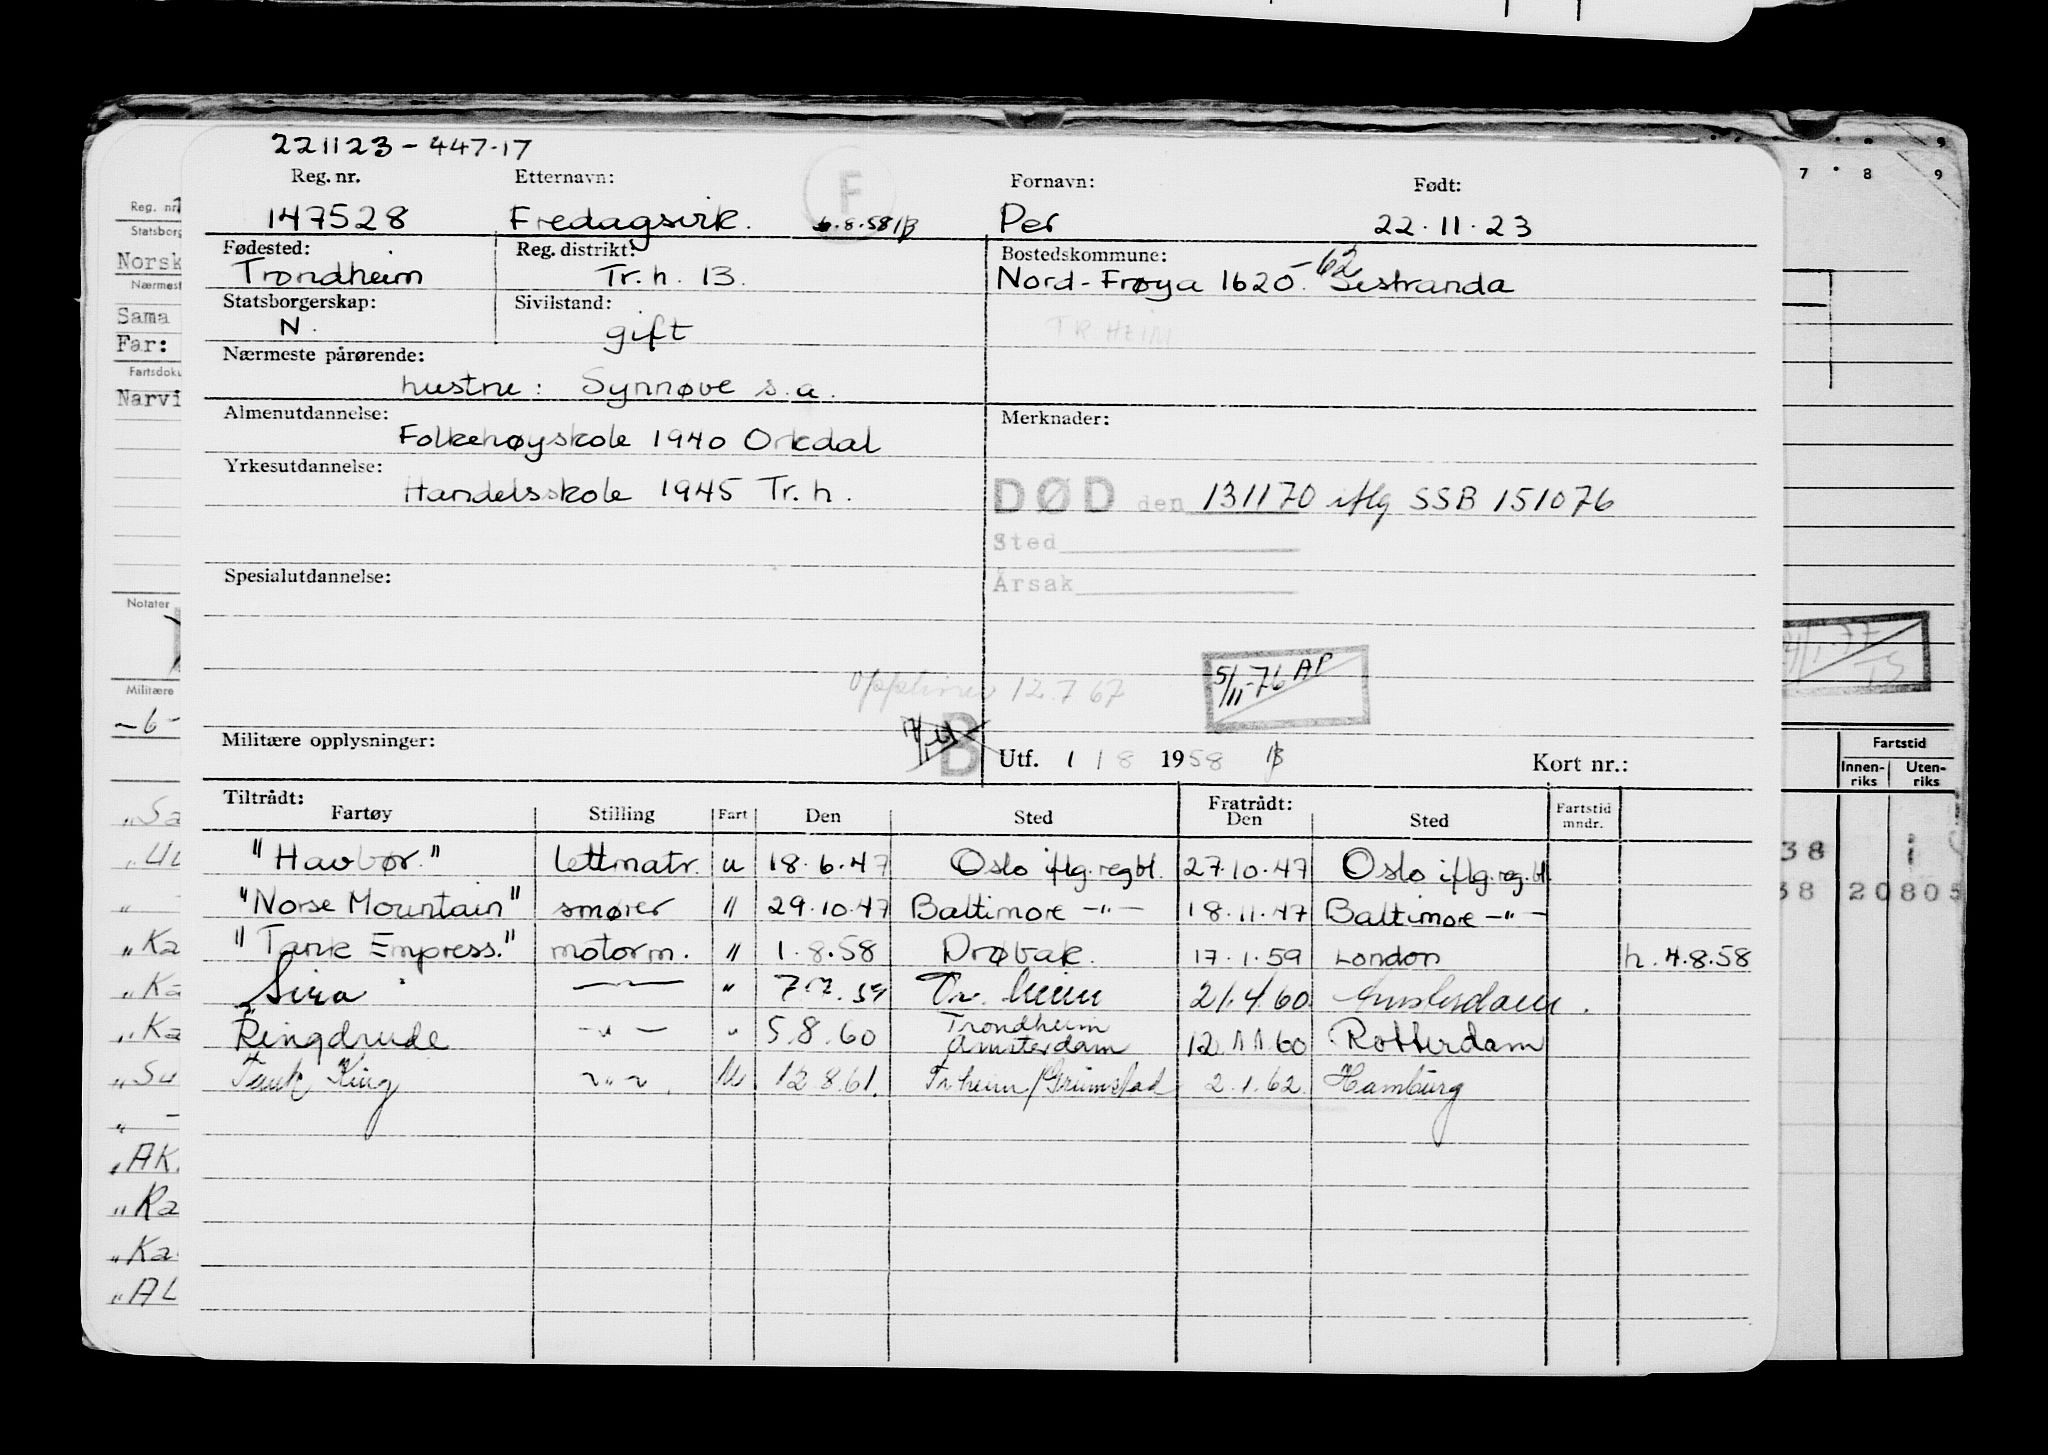 221123-447-17
Reg. nr. Etternavn: F Fornavn: Født:
147528 Fredagsvik. 6.8.58/B Per 22.11.23
Fødested: Reg. distrikt: Bostedskommune:
Trondheim Tr.h. 13. Nord-Frøya 1620.-62 Sistranda
Statsborgerskap: Sivilstand:
N. gift TR.HEIM
Nærmeste pårørende:
hustru: Synnøve s.a.
Almenutdannelse: Merknader:
Folkehøyskole 1940 Orkdal
Yrkesutdannelse:
Handelsskole 1945 Tr.h. DØD den 131170 iflg SSB 151076
Sted
Årsak
Spesialutdannelse:
12.7 67 5/11-76 AP
Militære opplysninger: B Utf. 1/8 1958 B Kort nr.:
Tiltrådt: Fratrådt:
Fartøy Stilling Fart Den Sted Den Sted Fartstid mndr.
"Havbør." lettmatr. u 18.6.47 Oslo iflg.regbl. 27.10.47 Oslo iflg.reg.bl.
"Norse Mountain" smører " 29.10.47 Baltimore -"- 18.11.47 Baltimore -"-
"Tank Empress." motorm. " 1.8.58 Drøbak. 17.1.59 London h. 4.8.58
"Sira -"- " 7.7.59 Tr.heim 21.4.60 Amsterdam.
Ringdrude -"- " 5.8.60 Trondheim Amsterdam 12.11.60 Rotterdam
Tank King -"- U 12.8.61. Tr.heim/Grimstad 2.1.62. Hamburg
Reg. nr.
Statsborg
Norsk
Nærmest
Sama
Far:
Fartsdoku
Narvi
Notater
Militære
-6-
"Sa
"Ka
"Ka
"Ka
"Su
"AK.
"Ra
"Ka
"AL
7 8 9
9
Fartstid
Innen-riks Uten-riks
38 1
38 20805